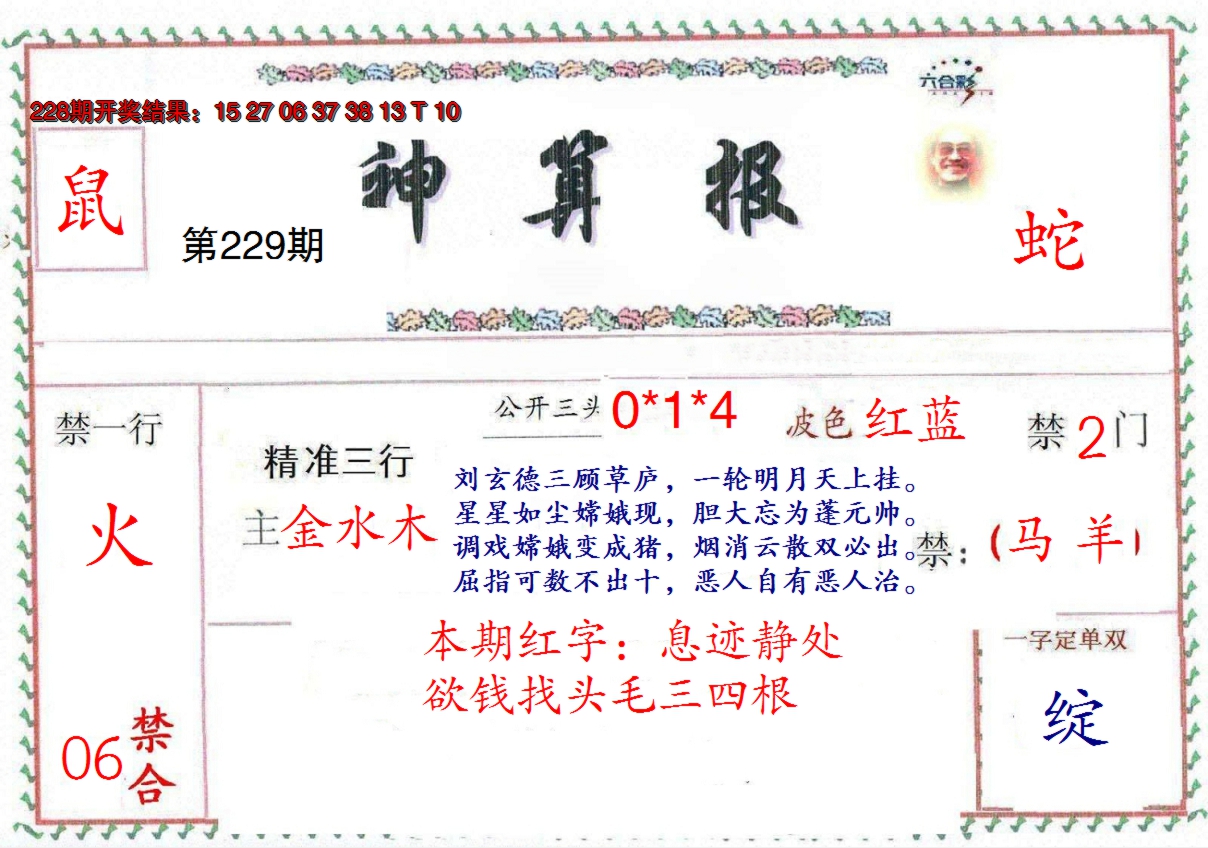 六合彩
228期开奖结果：15 27 06 37 38 13 T 10
鼠
神算报
第229期
蛇
禁一行
火
06
禁合
精准三行
主金水木
公开三头 0*1*4
波色 红蓝
禁2门
刘玄德三顾草庐，一轮明月天上挂。
星星如尘嫦娥现，胆大忘为蓬元帅。
调戏嫦娥变成猪，烟消云散双必出。
屈指可数不出十，恶人自有恶人治。
禁：（马 羊）
本期红字：息迹静处
欲钱找头毛三四根
一字定单双
绽